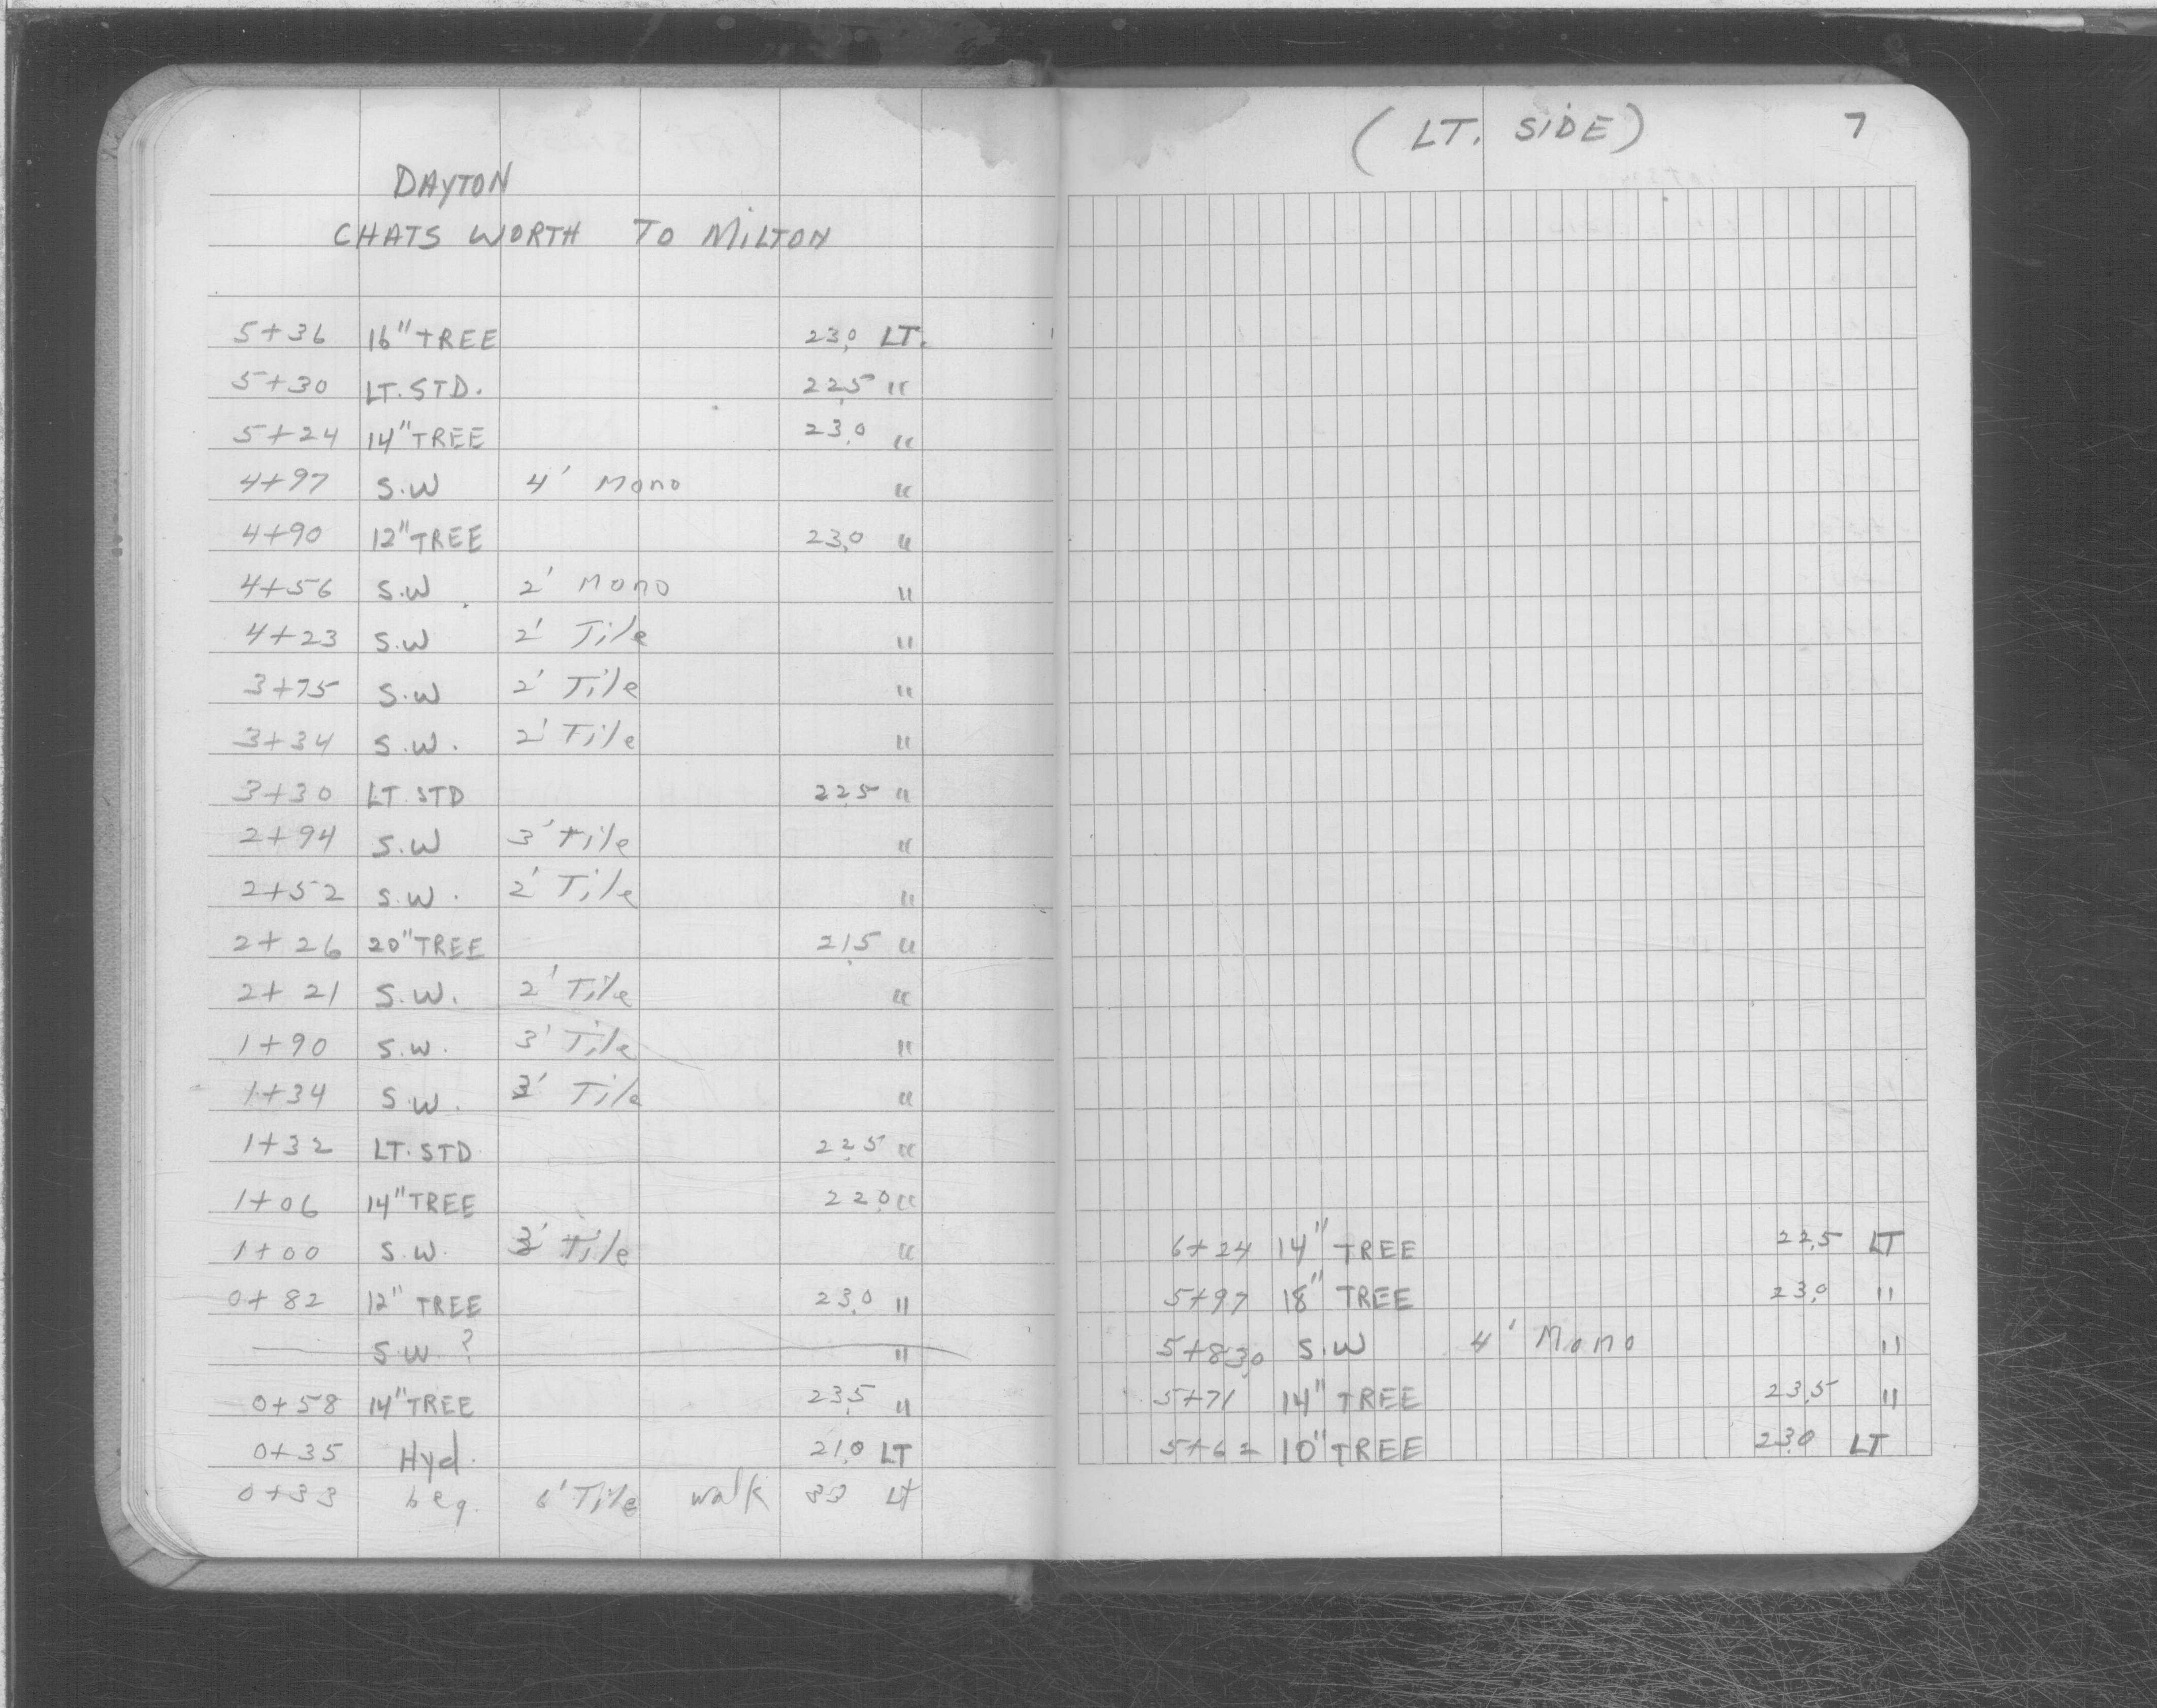 DAYTON
CHATSWORTH TO MILTON
5+36 16" TREE 23.0 LT.
5+30 LT. STD. 22.5 "
5+24 14" TREE 23.0 "
4+97 S.W 4' Mono "
4+90 12" TREE 23.0 "
4+56 S.W 2' Mono "
4+23 S.W 2' Tile "
3+75 S.W 2' Tile "
3+34 S.W. 2' Tile "
3+30 LT STD 22.5 "
2+94 S.W 3' tile "
2+52 S.W. 2' Tile "
2+26 20" TREE 21.5 "
2+21 S.W. 2' Tile "
1+90 S.W. 3' Tile "
1+34 S.W. 3' Tile "
1+32 LT. STD 22.5 "
1+06 14" TREE 22.0 "
1+00 S.W. 3' Tile "
0+82 12" TREE 23.0 "
S.W. ? "
0+58 14" TREE 23.5 "
0+35 Hyd. 21.0 LT
0+33 beg. 6' Tile walk 33 Lt
(LT. SIDE) 7
6+24 14" TREE 22.5 LT
5+97 18" TREE 23.0 "
5+83.0 S.W 4' Mono "
5+71 14" TREE 23.5 "
5+62 10" TREE 23.0 LT